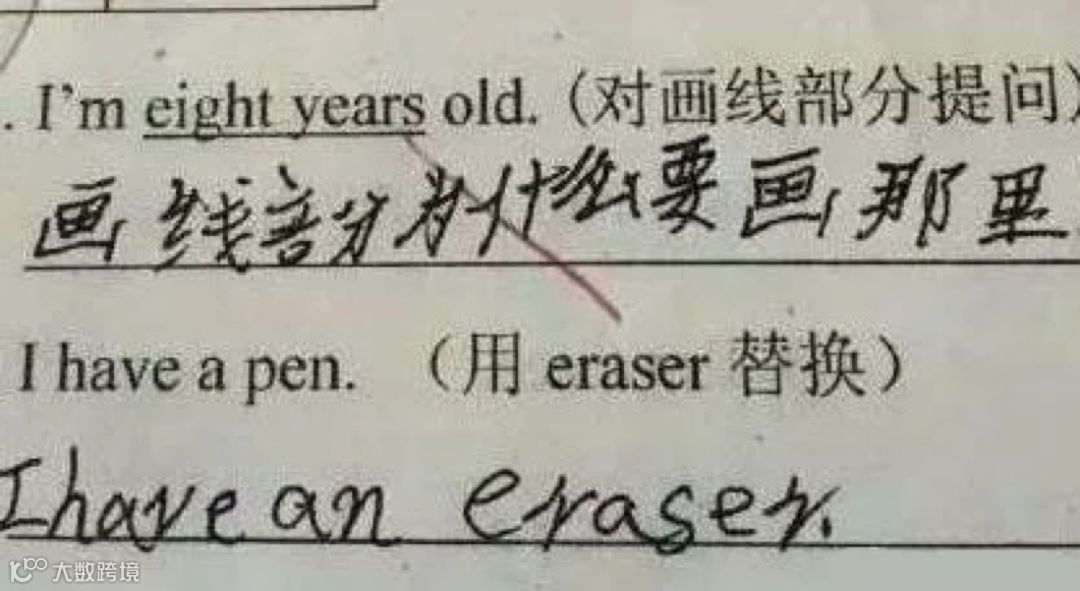 . I'm eight years old. (对画线部分提问)
画线部分为什么要画那里
I have a pen. （用 eraser 替换）
I have an eraser.
大数跨境